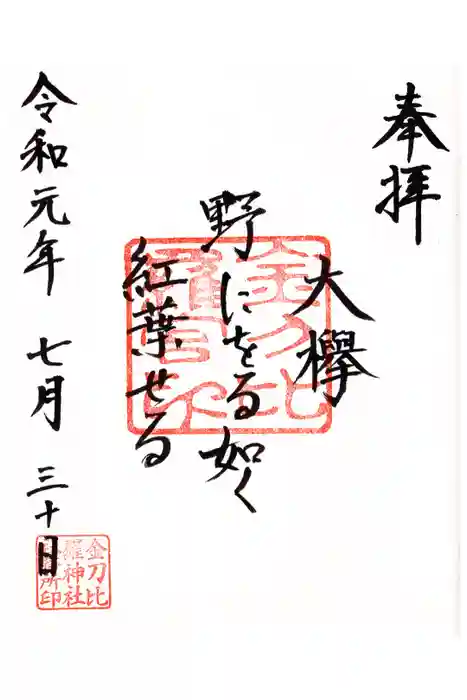 奉拝
大欅
野にをる如く
紅葉せる
令和元年 七月 三十日
金刀比
羅神社